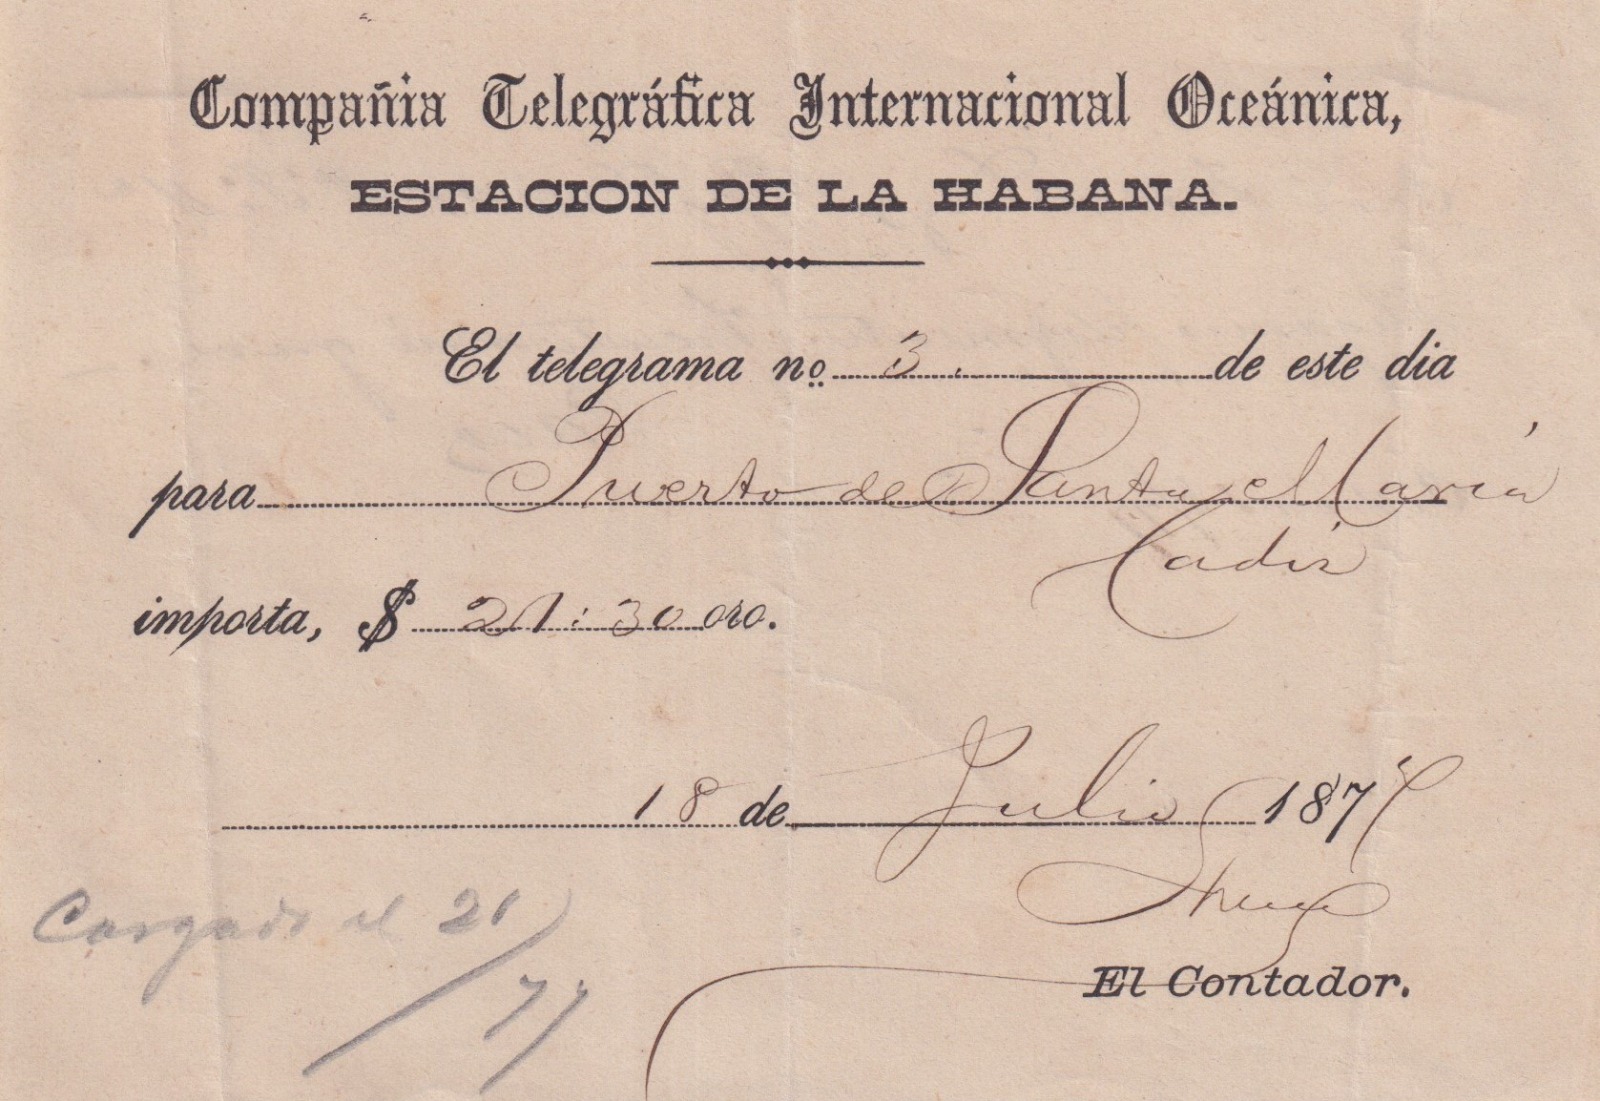 Compañia Telegráfica Internacional Oceánica,
ESTACION DE LA HABANA.
El telegrama nº 3. de este dia
para Puerto de Santa Maria
Cadiz
importa, $ 21:30 oro.
18 de Julio 1877
El Contador.
Cargado el 21/77